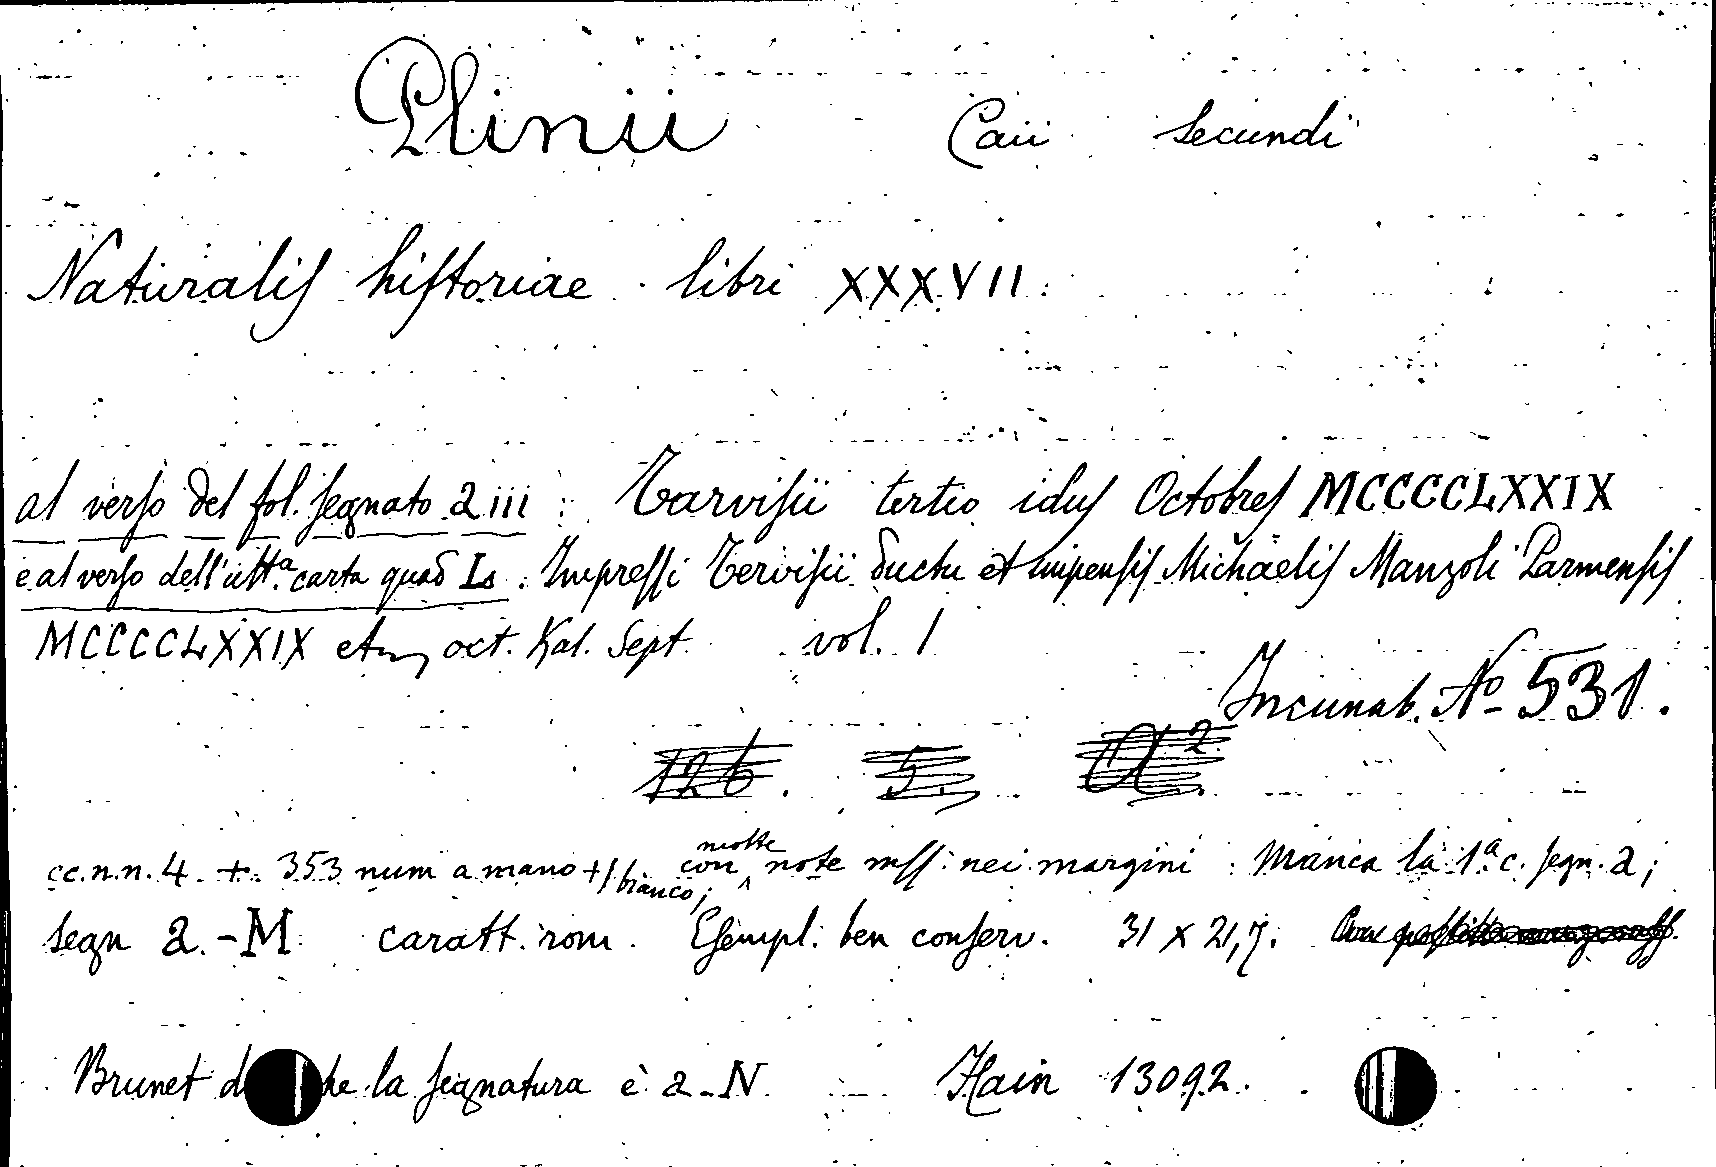 Plinii Caii Secundi
Naturaliſ hiſtoriae libri XXXVII.
al verſo del fol. ſegnato a iii : Tarviſii tertio iduſ Octobreſ MCCCCLXXIX
e al verſo dell'ultᵃ. carta quad Is : Impreſſi Terviſii ductu et impenſiſ Michaeliſ Manzoli Parmenſiſ
MCCCCLXXIX oct. Kal. Sept. vol. 1
Incunab. Nº 531.
126. 5. A².
cc. n. n. 4. + 353 num a mano + 1 bianco; con molte note mſſ. nei margini : Manca la 1ª c. ſegn. a;
segn a - M caratt. rom. Eſempl. ben conſerv. 31 x 21,7.
Brunet la ſegnatura è a - N. Hain 13092.